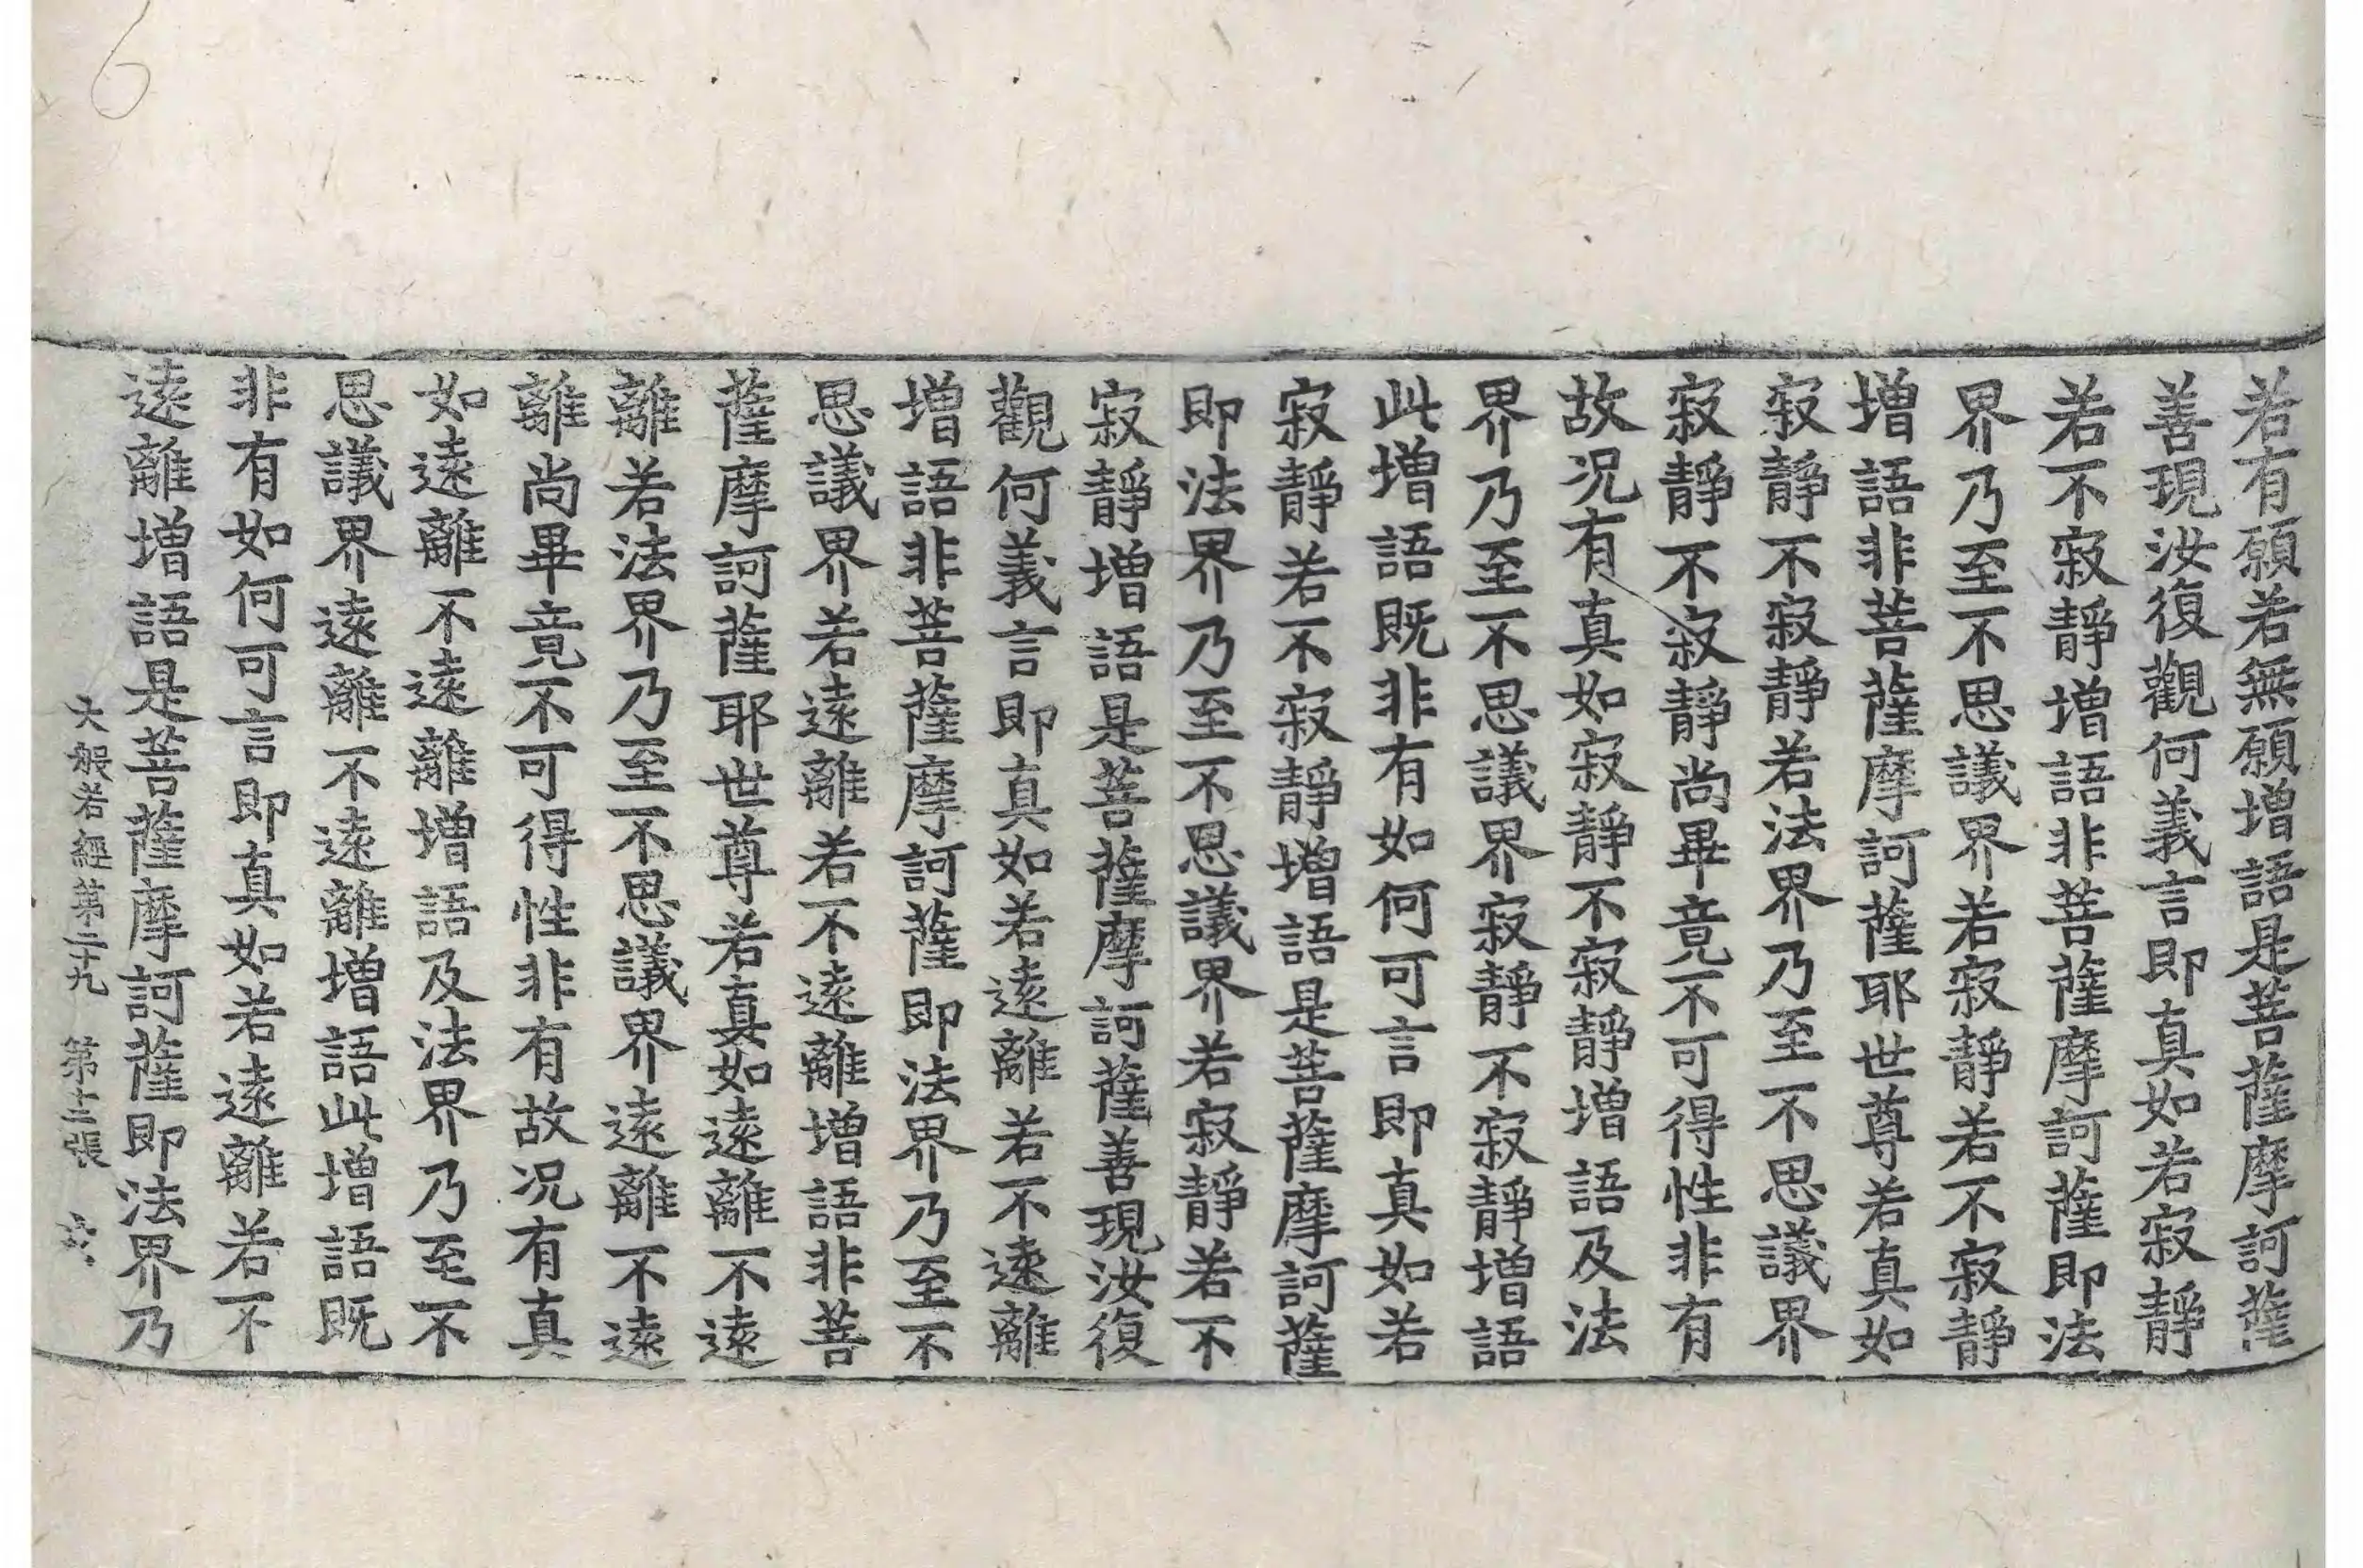 若有願若無願增語是菩薩摩訶薩
善現汝復觀何義言即真如若寂靜
若不寂靜增語非菩薩摩訶薩即法
界乃至不思議界若寂靜若不寂靜
增語非菩薩摩訶薩耶世尊若真如
寂靜不寂靜若法界乃至不思議界
寂靜不寂靜尚畢竟不可得性非有
故況有真如寂靜不寂靜增語及法
界乃至不思議界寂靜不寂靜增語
此增語既非有如何可言即真如若
寂靜若不寂靜增語是菩薩摩訶薩
即法界乃至不思議界若寂靜若不
寂靜增語是菩薩摩訶薩善現汝復
觀何義言即真如若遠離若不遠離
增語非菩薩摩訶薩即法界乃至不
思議界若遠離若不遠離增語非菩
薩摩訶薩耶世尊若真如遠離不遠
離若法界乃至不思議界遠離不遠
離尚畢竟不可得性非有故況有真
如遠離不遠離增語及法界乃至不
思議界遠離不遠離增語此增語既
非有如何可言即真如若遠離若不
遠離增語是菩薩摩訶薩即法界乃
大般若經第二十九 第十三張
6